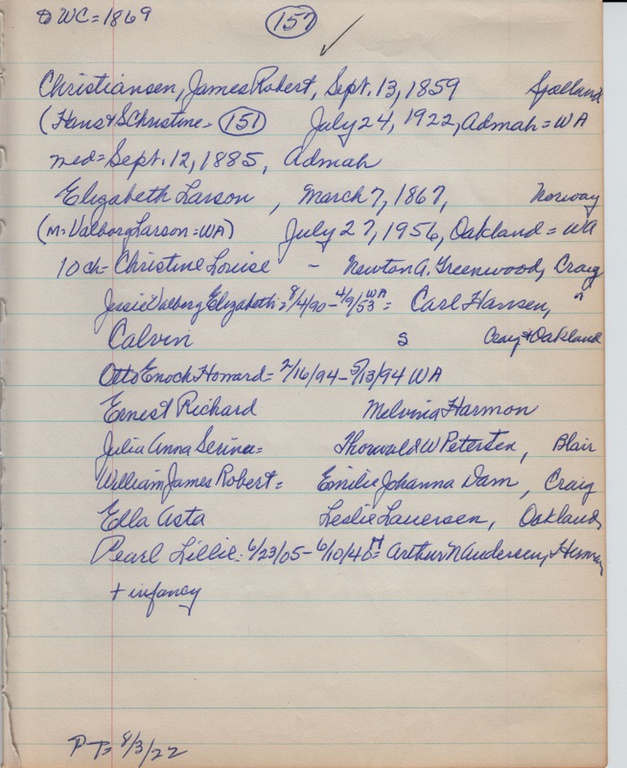 DWC=1869
157 ✓
Christiansen, James Robert, Sept. 13, 1859 Sjælland
(Hans & SChristine - 151) July 24, 1922, Admah = WA
med = Sept. 12, 1885, Admah
Elizabeth Larson, March 7, 1867, Norway
(M: Valborg Larson = WA) July 27, 1956, Oakland = WA
10 ch = Christine Louise - Newton A. Greenwood, Craig
Jessie Valborg Elizabeth = 8/4/90 - 4/9/53 WA = Carl Hansen, "
Calvin S Craig & Oakland
Otto Enoch Howard = 2/16/94 - 5/13/94 WA
Ernest Richard Melvina Harmon
Julia Anna Serina = Thorwald W Petersen, Blair
William James Robert = Emilie Johanna Dam, Craig
Ella Asta Leslie Lauersen, Oakland
Pearl Lillie: 6/23/05 - 6/10/46 = Arthur N Andersen, Herman
+ infancy
8/3/22